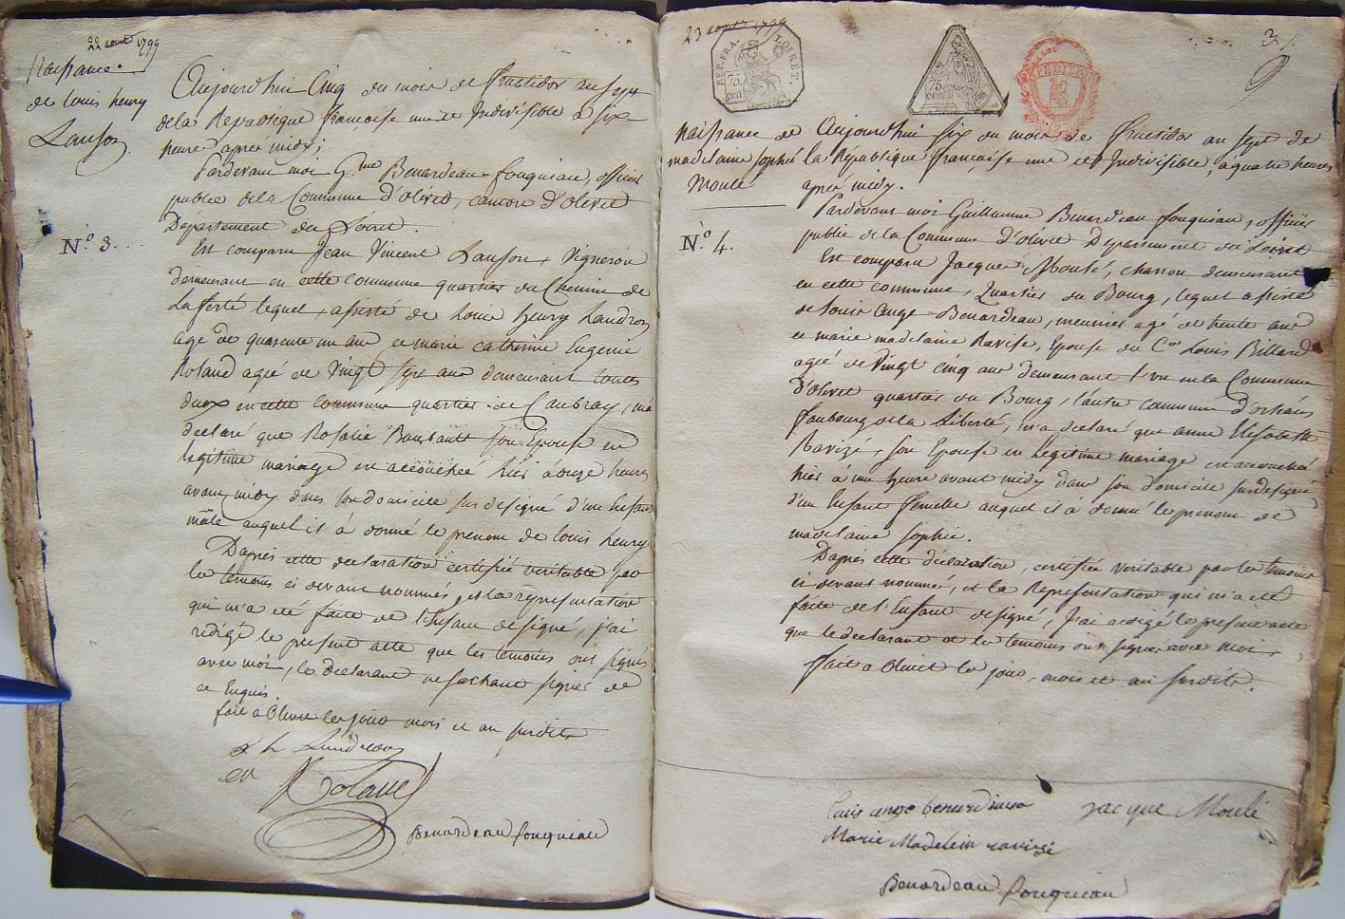 22 aout 1799
Naissance
de louis henry
Lanson
N.o 3.
Aujourd'hui Cinq du mois de fructidor an sept
de la Republique françoise une et Indivisible à six
heures après midy;
Pardevant moi G.me Benardeau fouqueau, officier
public de la Commune d'olivet, canton d'olivet
Département du Loiret.
Est comparu Jean Vincent Lanson, Vigneron
demeurant en cette commune quartier du Chemin de
La ferté lequel, assisté de Louis henry Landron
agé de quarente un ans et marie catherine Eugenie
Roland agée de Vingt sept ans demeurant toutes
deux en cette commune quartier de Caubray, m'a
déclaré que Rosalie Boubault son Epouse en
legitime mariage est accouchée hier à onze heures
avant midy dans son domicile sus designé d'un Enfant
mâle auquel il à donné le prenom de louis henry
D'après cette declaration certifiée veritable par
les temoins ci devant nommés, et la representation
qui m'a été faite de l'Enfant designé, j'ai
redigé le present acte que les temoins ont signés
avec moi, le declarant ne sachant signer de
ce Enquis.
fait a Olivet les jour mois et an susdits
L h Landron
Rolland
Benardeau fouqueau
23 aout 1799
REP. FRA. LOIRET.
3
naissance de
madelaine sophie
Moulé
N.o 4.
Aujourd'hui six du mois de fructidor an sept de
la République française une et Indivisible, à quatre heures
après midy.
Pardevant moi Guillaume Benardeau fouqueau, officier
public de la Commune d'olivet Departement du Loiret
Est comparu Jacque Moulé, charron demeurant
en cette commune, Quartier du Bourg, lequel assisté
de Louis Ange Benardeau, meunier agé de trente ans
et marie madelaine Ravisé, Epouse du C.en Louis Billard
agée de Vingt cinq ans demeurant l'un en la Commune
D'olivet quartier du Bourg, l'autre commune d'orleans
faubourg de la Liberté, m'a declaré que anne Elisabeth
Ravizé, son Epouse en legitime mariage est accouchée
hier à une heure avant midy dans son domicile sus designé
d'un Enfant femelle auquel il à donné le prenom de
madelaine sophie.
D'après cette déclaration, certifiée veritable par les temoins
ci devant nommés, et la Representation qui m'a été
faite de l'Enfant designé, J'ai redigé le present acte
que le declarant et les temoins ont signés avec moi.
fait a Olivet les jour, mois et an susdits.
Louis ange benardeau
Jacque Moulé
Marie Madelein ravizé
Benardeau fouqueau